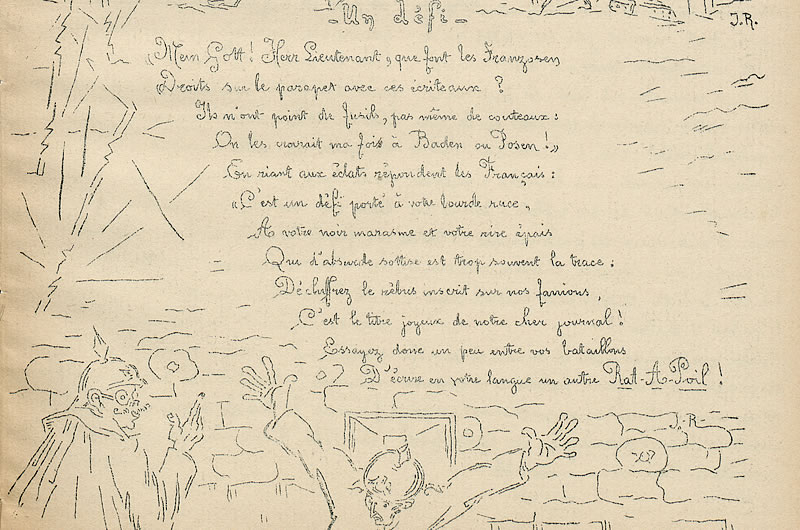 - Un défi -
J.R.
"Mein Gott! Herr Lieutenant, que font les Franzosen
Droits sur le parapet avec ces écriteaux ?
Ils n'ont point de fusils, pas même de couteaux :
On les croirait ma fois à Baden ou Posen !"
En riant aux éclats répondent les Français :
"C'est un défi porté à votre lourde race,
A votre noir marasme et votre rire épais
Qui d'absurde sottise est trop souvent la trace :
Déchiffrez le rébus inscrit sur nos fanions,
C'est le titre joyeux de notre cher journal !
Essayez donc un peu entre vos bataillons
D'écrire en votre langue un autre Rat-A-Poil !
J.-R-